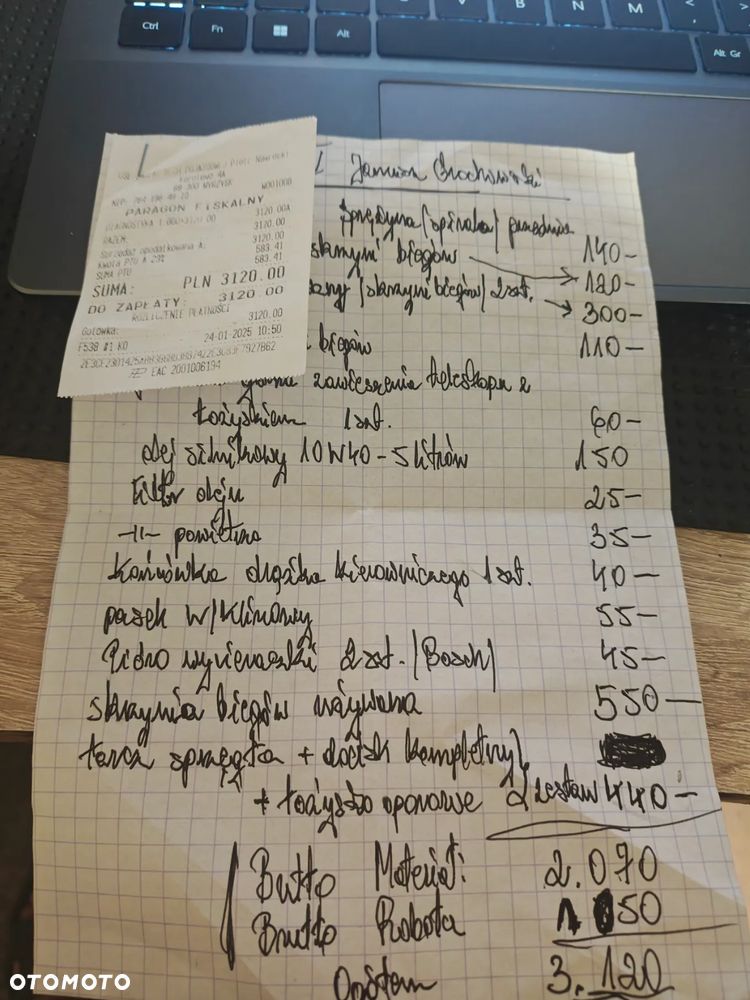 Ctrl
Fn
Alt
B
N
M
Alt Gr
Piotr
Karolewo 4A
89-300 WYRZYSK
W001000
NIP:
PARAGON FISKALNY
3120.00A
RAZEM: 3120.00
Sprzedaż opodatkowana A: 3120.00
Kwota PTU A 23% 583.41
SUMA PTU 583.41
SUMA: PLN 3120.00
DO ZAPŁATY: 3120.00
ROZLICZENIE PŁATNOŚCI
Gotówka: 3120.00
F538 #1 K0 24-01-2025 10:50
EAC 2001006194
Sprężyna (spirala) przednie 140-
skrzyni biegów 120-
(skrzyni biegów) 2 szt. 300-
biegów 110-
górne zawieszenia teleskopu z
łożyskiem 1 szt. 60-
olej silnikowy 10W40-5 litrów 150
Filtr oleju 25-
-||- powietrza 35-
końcówka drążka kierowniczego 1 szt. 40-
pasek W/Klinowy 55-
Pióro wycieraczki 2 szt. (Bosch) 45-
skrzynia biegów używana 550-
tarcz sprzęgła + docisk kompletny
+ łożysko oporowe zestaw 440-
Butto Materiał: 2.070
Brutto Robota 1 050
3.120
OTOMOTO